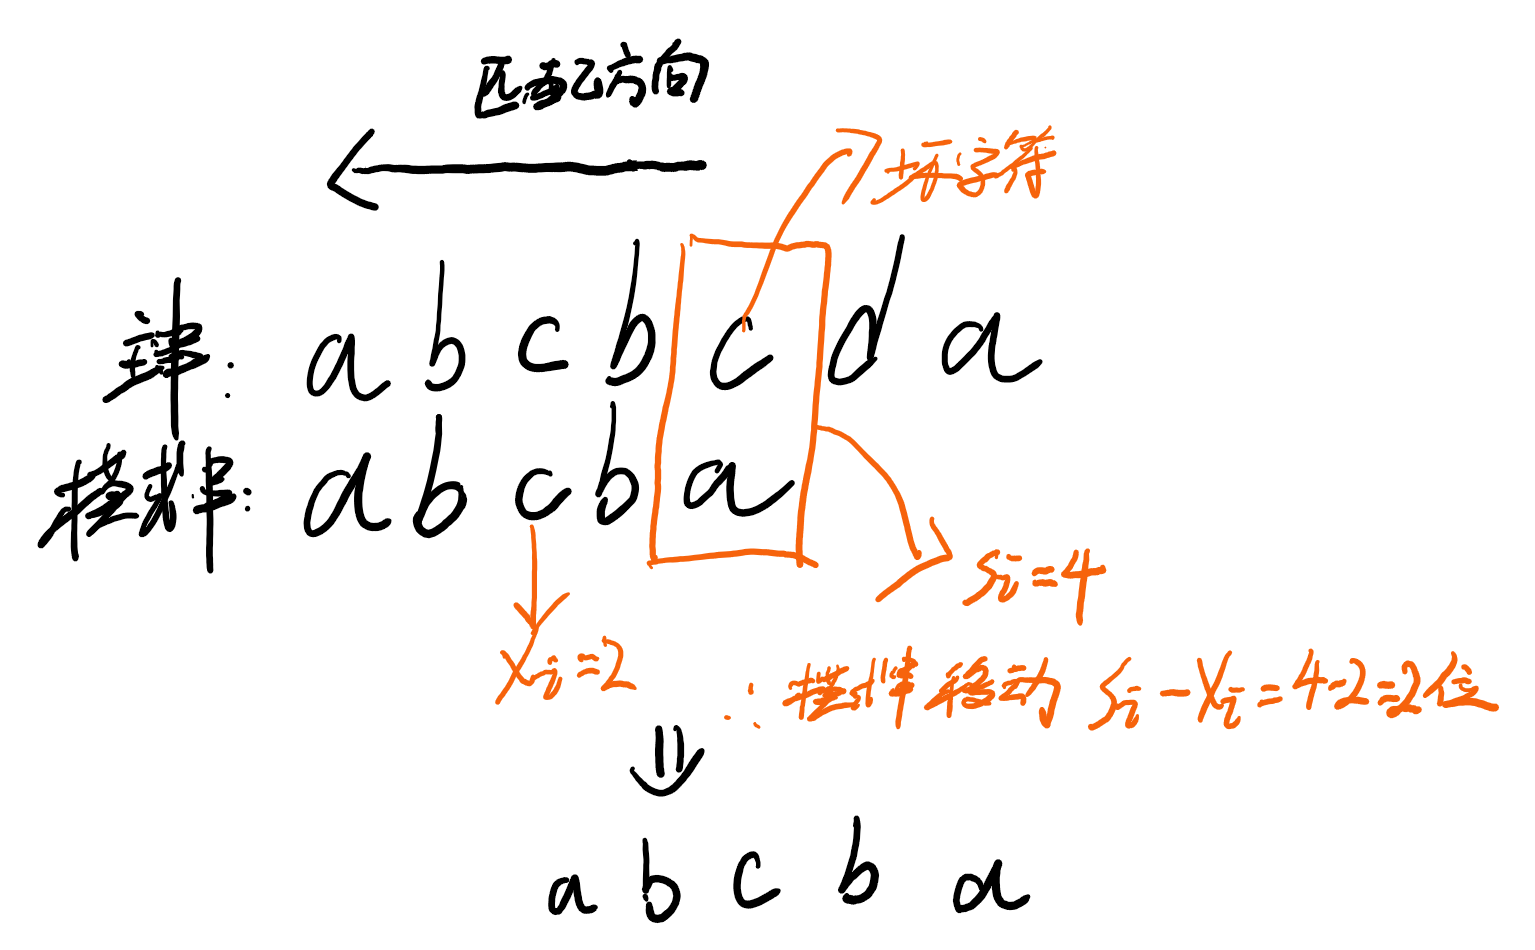 匹配方向
坏字符
主串: a b c b c d a
模式串: a b c b a
si=4
xi=2
∴ 模式串移动 si-xi=4-2=2位
a b c b a